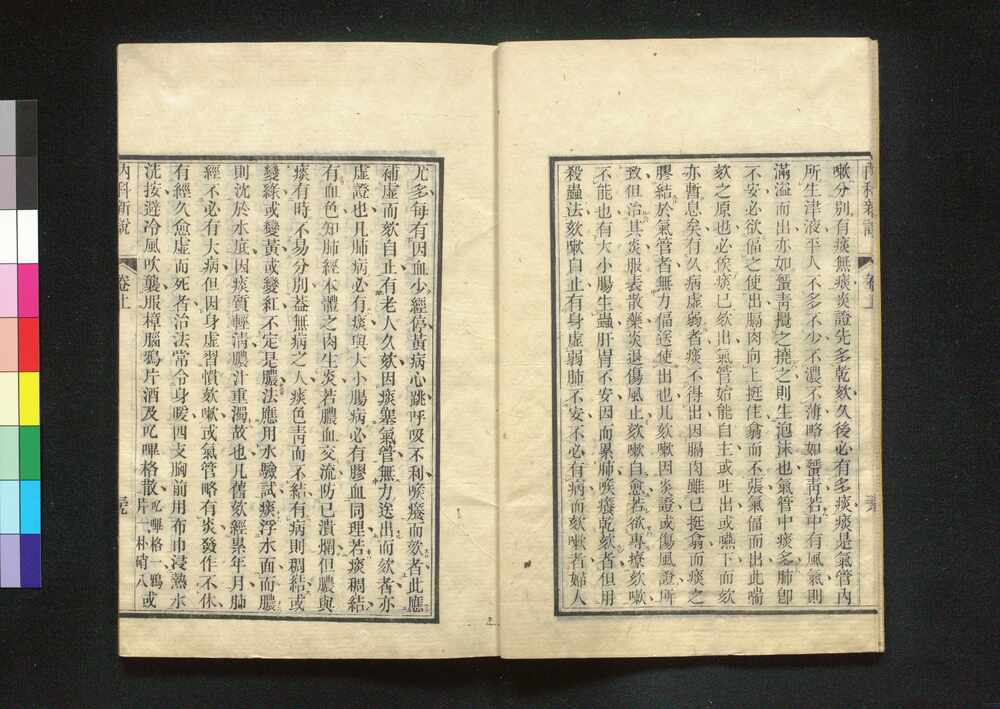 內科新說 卷上
嗽分別有痰無痰炎證先多乾欬久後必有多痰痰是氣管內
所生津液平人不多不少不濃不薄略如蜑青若中有風氣則
滿溢而出亦如蜑青攪之撓之則生泡沫也氣管中痰多肺卽
不安必欲偪之使出膈肉向上挺住翕而不張氣偪而出此喘
欬之原也必俟痰已欬出氣管始能自主或吐出或嚥下而欬
亦暫息矣有久病虛弱者痰不得出因膈肉雖已挺翕而痰之
膠結於氣管者無力偪送使出也凡欬嗽因炎證或傷風證所
致但治其炎服表散藥炎退傷風止欬嗽自愈若欲專療欬嗽
不能也有大小腸生蟲肝胃不安因而累肺喉癢乾欬者但用
殺蟲法欬嗽自止有身虛弱肺不安不必有病而欬嗽者婦人
尤多每有因血少經停黃病心跳呼吸不利喉癢而欬者此應
補虛而欬自止有老人久欬因痰塞氣管無力送出而欬者亦
虛證也凡肺病必有痰與大小腸病必有膠血同理若痰稠結
有血色知肺經本體之肉生炎若膿血交流防已潰爛但膿與
痰有時不易分別蓋無病之人痰色青而不結有病則稠結或
變綠或變黃或變紅不定是膿法應用水驗試痰浮水面而膿
則沈於水底因痰質輕清膿汁重濁故也凡舊欬經累年月肺
經不必有大病但因身虛習慣欬嗽或氣管略有炎發作不休
有經久愈虛而死者治法常令身暖四支胸前用布巾浸熱水
洗按避冷風吹襲服樟腦鴉片酒及叱嗶格散叱嗶格一鴉片一朴硝八或
內科新說 卷上